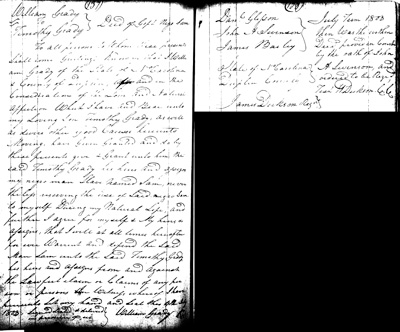 William Grady
To
Timothy Grady } Deed of Gift Negro Sam
To all persons to whom these presents
shall come Greeting Know ye that I Will
iam Grady of the State of N Carolina
& County of Duplin for and in the
Consideration of the Love and Natural
affection Which I have and Bear unto
my Loving Son Timothy Grady as well
as divers other good Causes hereunto
Moving have given Granted and do by
these presents give & Grant unto him the
said Timothy Grady his heirs and assigns
my negro man Slave named Sam, never
theless reserving the use of Said negro Sam
to myself During my Natural Life, and
further I agree for myself & My heirs &
assigns, that I will at all times hereafter
for ever Warrant and defend the Said
Man Sam unto the Said Timothy Grady
his heirs and assigns from and against
the Lawful claim or Claims of any per
son or persons In Witness whereof I have
presents Set my hand and Seal this
1823 William Grady
Danl Glisson
John A Swinson
James Bailey
State of N Carolina
Duplin County
July Term 1823
Then was the within
Deed proved in Court
by the oath of John
A Swinson, and
ordered to be Regd
Test W Dickson CC
James Dickson Regr